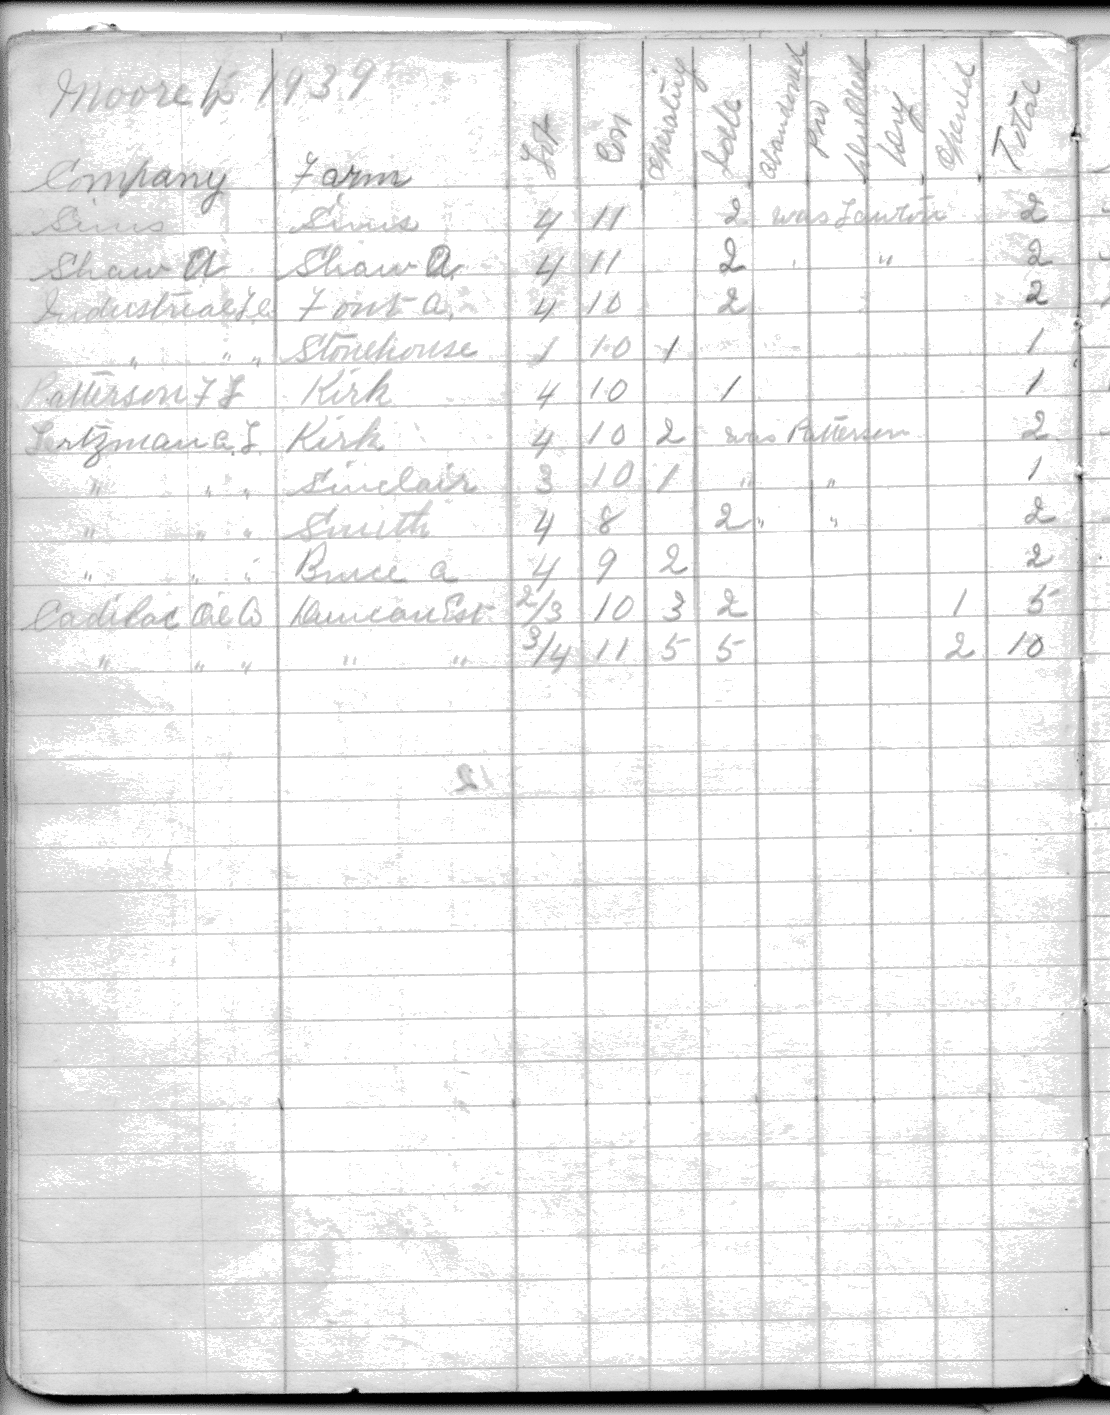 Moore tp 1939
Company Farm Lot Con Operating Idle Abandoned Pro Drilled Dry Opened Total
Sims Sims 4 11 2 was Lawton 2
Shaw A Shaw A. 4 11 2 " " 2
Industrial Font a. 4 10 2 2
" " " Stonehouse 1 10 1 1
Patterson F J Kirk 4 10 1 1
a. J. Kirk 4 10 2 was Patterson 2
" " " Sinclair 3 10 1 " " 1
" " " Smith 4 8 2 " " 2
" " " Bruce a 4 9 2 2
Cadilac Oil Co Duncan Est. 2/3 10 3 2 1 5
" " " " " 3/4 11 5 5 2 10